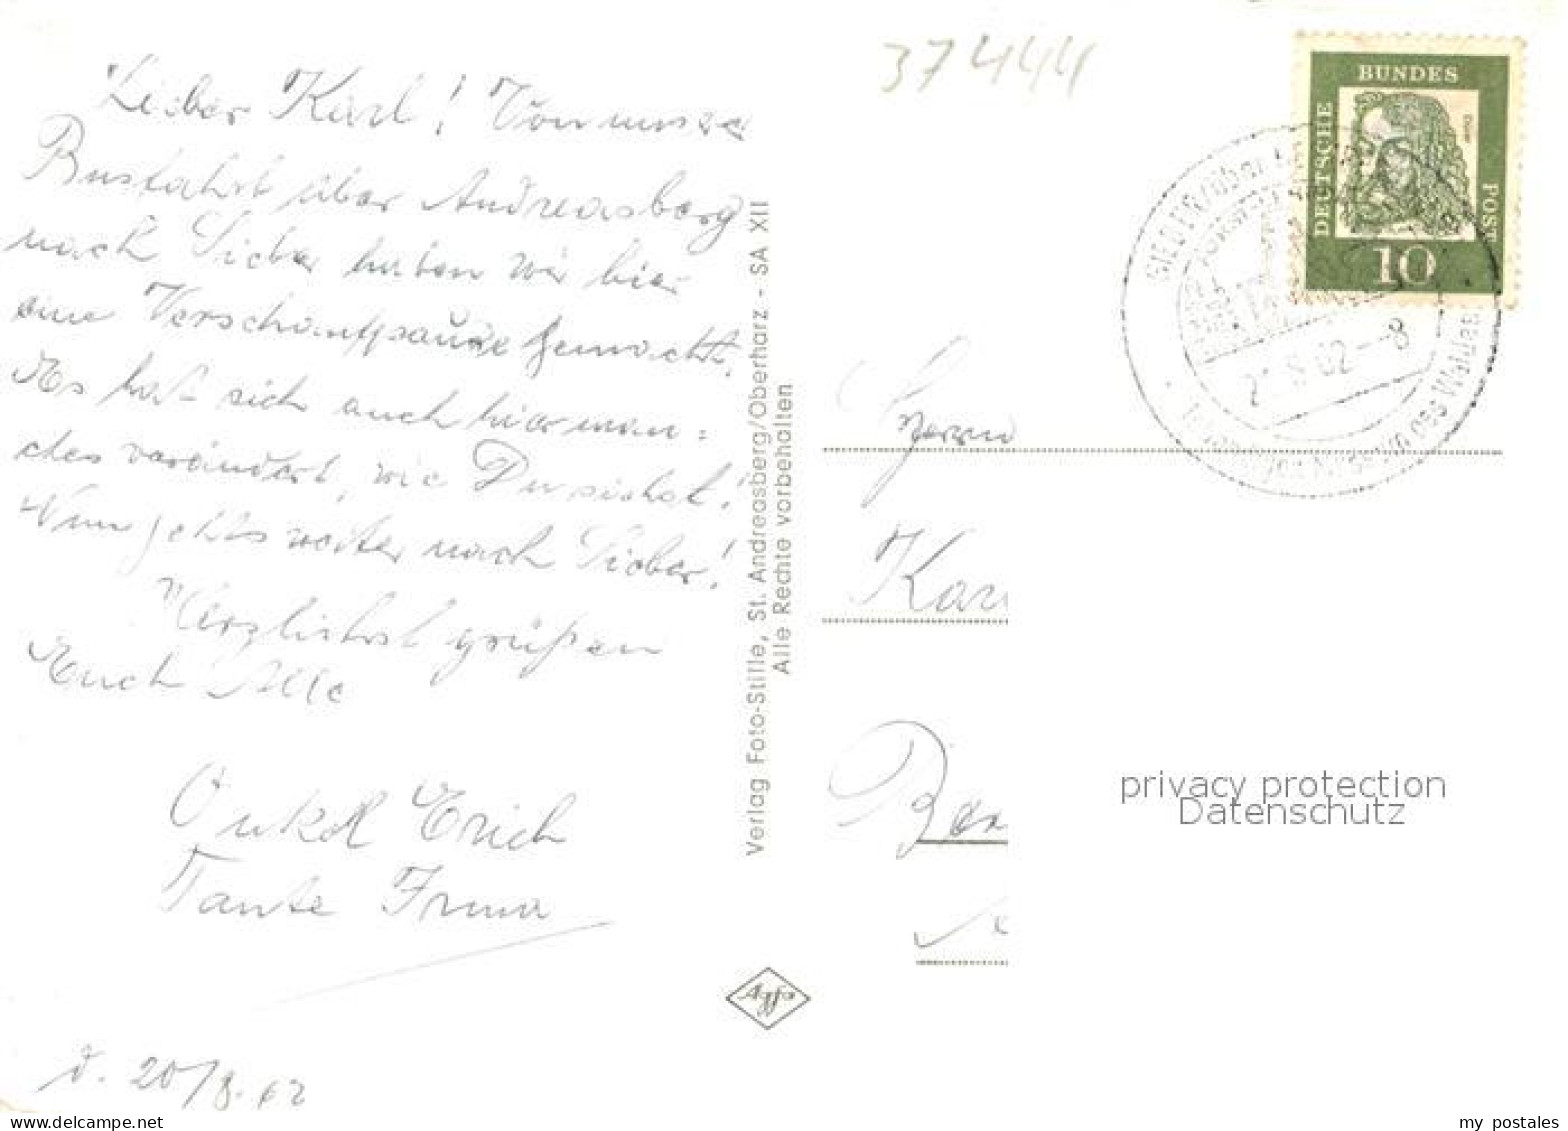 Lieber Karl! Von unserer
Busfahrt über Andreasberg
nach Sieber haben wir hier
eine Verschnaufpause gemacht.
Es hat sich auch hier man=
ches verändert, wie Du siehst!
Nun gehts weiter nach Sieber!
Herzlichst grüßen
Euch Alle
Onkel Erich
Tante Irma
d. 20/8. 62
Verlag Foto-Stille, St. Andreasberg/Oberharz - SA XII
Alle Rechte vorbehalten
Agfa
37444
DEUTSCHE
BUNDES
POST
Dürer
10
62-8
des Waldes
Herrn
Kar
privacy protection
Datenschutz
www.delcampe.net
my_postales